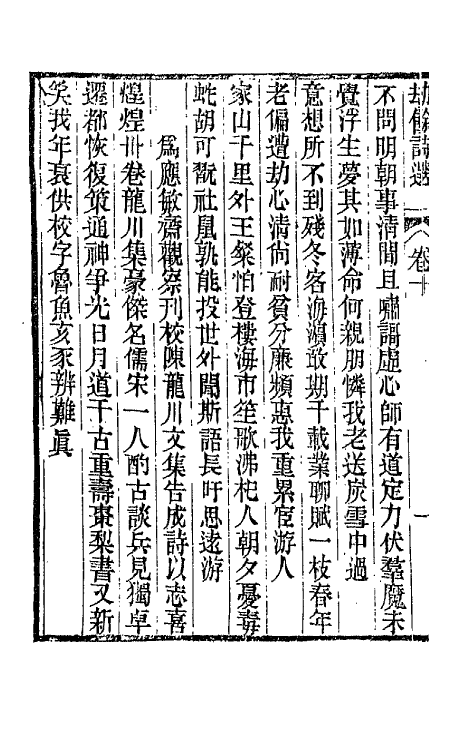 劫餘詩選 卷十 一
不問明朝事清閒且嘯謳虛心師有道定力伏羣魔未
覺浮生夢其如薄命何親朋憐我老送炭雪中過
意想所不到殘冬客海濵敢期千載業聊賦一枝春年
老偏遭劫心清尙耐貧分廉頻惠我重累宦游人
家山千里外王粲怕登樓海市笙歌沸杞人朝夕憂毒
蛇胡可翫社鼠孰能投世外聞斯語長吁思遠游
爲應敏齋觀察刊校陳龍川文集告成詩以志喜
煌煌卅卷龍川集豪傑名儒宋一人酌古談兵見獨卓
遷都恢復策通神爭光日月道千古重壽棗梨書又新
笑我年衰供校字魯魚亥豕辨難眞